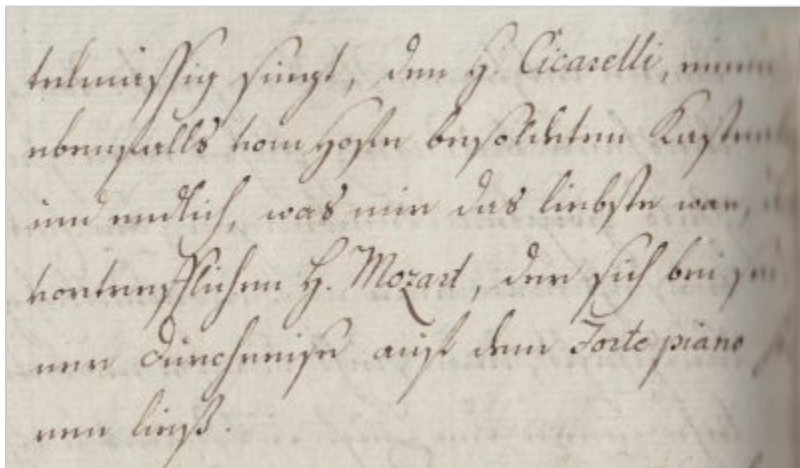 telmässig singt, den H. Cicarelli, einen
ebenfalls vom Hofe besoldeten
und endlich, was mir das liebste war,
vortrefflichen H. Mozart, der sich bei
ner Durchreise auf dem Forte piano
nen ließ.